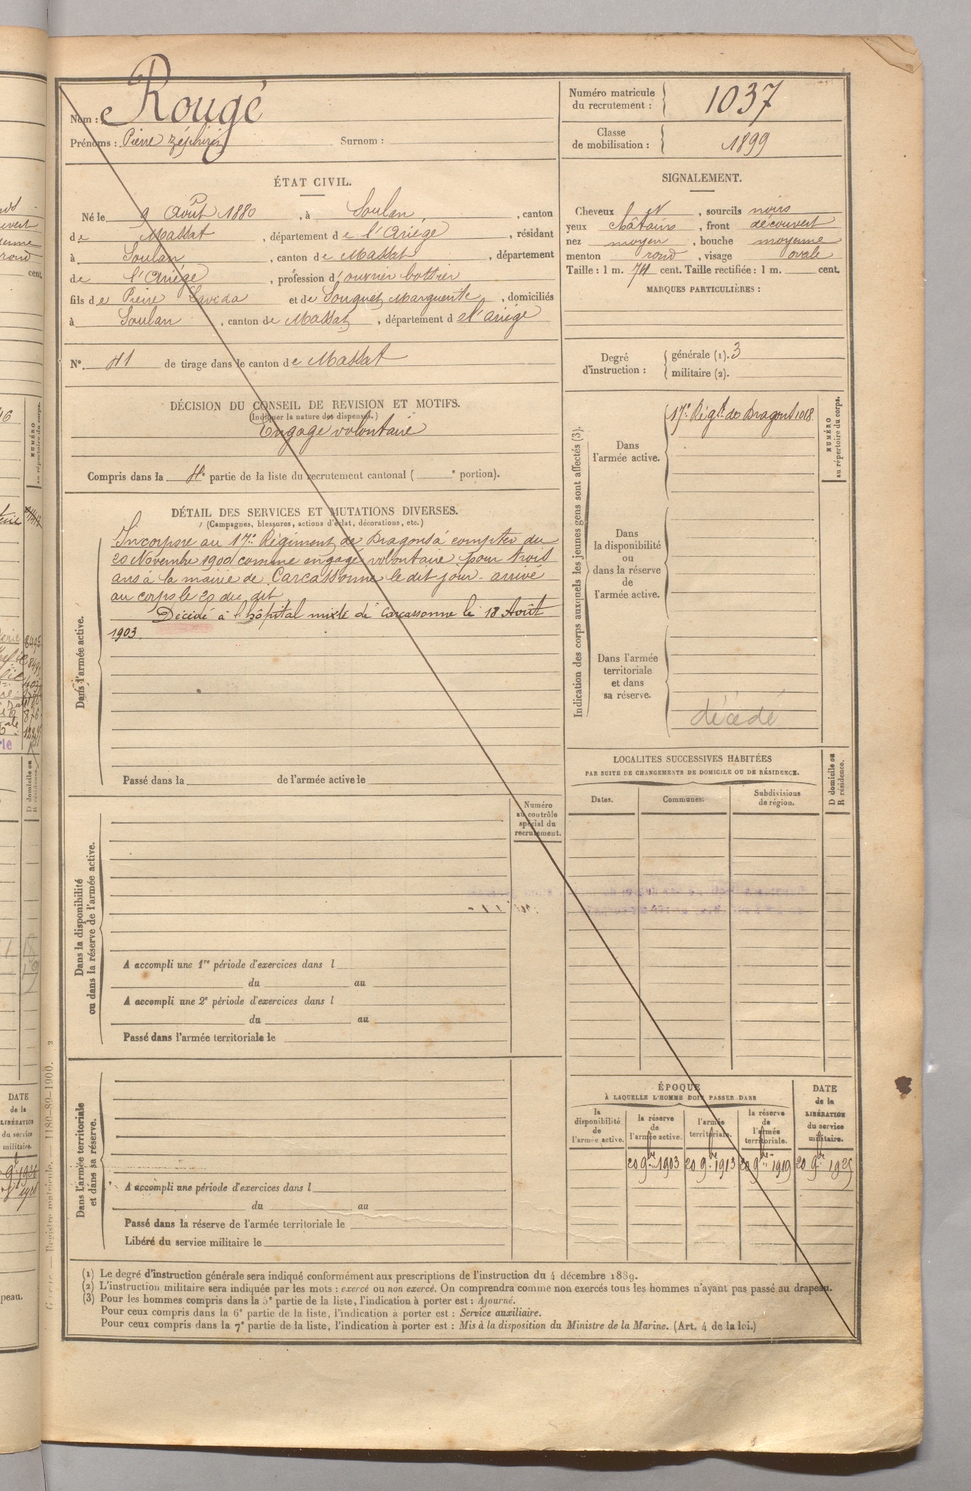 Nom : Rougé
Prénoms : Pierre Zéphirin Surnom :
Numéro matricule du recrutement : 1037
Classe de mobilisation : 1899
ÉTAT CIVIL.
Né le 9 Août 1880, à Soulan, canton
de Massat, département de l'Ariège, résidant
à Soulan, canton de Massat, département
de l'Ariège, profession d'ouvrier bottier
fils de Pierre et de Souquet Marguerite, domiciliés
à Soulan, canton de Massat, département de l'Ariège
N° 41 de tirage dans le canton de Massat
SIGNALEMENT.
Cheveux, sourcils noirs
yeux châtains, front découvert
nez moyen, bouche moyenne
menton rond, visage ovale
Taille : 1 m. 74 cent. Taille rectifiée : 1 m. cent.
MARQUES PARTICULIÈRES :
Degré d'instruction : générale (1). 3
militaire (2).
DÉCISION DU CONSEIL DE REVISION ET MOTIFS.
(Indiquer la nature des dispenses.)
Engagé volontaire
Compris dans la 4e partie de la liste du recrutement cantonal ( e portion).
DÉTAIL DES SERVICES ET MUTATIONS DIVERSES.
(Campagnes, blessures, actions d'éclat, décorations, etc.)
Dans l'armée active.
Incorporé au 17e Régiment de Dragons à compter du
20 Novembre 1900 comme engagé volontaire pour trois
ans à la mairie de Carcassonne le dit jour - arrivé
au corps le 20 du dit
Décédé à l'hôpital mixte de Carcassonne le 18 Août
1903
Passé dans la de l'armée active le
Indication des corps auxquels les jeunes gens sont affectés (3).
NUMÉRO au répertoire du corps.
Dans l'armée active.
17e Régt de Dragons 1018
Dans la disponibilité ou dans la réserve de l'armée active.
Dans l'armée territoriale et dans sa réserve.
décédé
LOCALITÉS SUCCESSIVES HABITÉES
PAR SUITE DE CHANGEMENTS DE DOMICILE OU DE RÉSIDENCE.
D domicile ou R résidence.
Dates. Communes. Subdivisions de région.
Numéro au contrôle spécial du recrutement.
Dans la disponibilité ou dans la réserve de l'armée active.
A accompli une 1re période d'exercices dans l
du au
A accompli une 2e période d'exercices dans l
du au
Passé dans l'armée territoriale le
Dans l'armée territoriale et dans sa réserve.
A accompli une période d'exercices dans l
du au
Passé dans la réserve de l'armée territoriale le
Libéré du service militaire le
ÉPOQUE
À LAQUELLE L'HOMME DOIT PASSER DANS
DATE de la LIBÉRATION du service militaire.
la disponibilité de l'armée active.
la réserve de l'armée active.
l'armée territoriale.
la réserve de l'armée territoriale.
20 9bre 1903 20 9bre 1913 20 9bre 1919 20 9bre 1925
(1) Le degré d'instruction générale sera indiqué conformément aux prescriptions de l'instruction du 4 décembre 1889.
(2) L'instruction militaire sera indiquée par les mots : exercé ou non exercé. On comprendra comme non exercés tous les hommes n'ayant pas passé au drapeau.
(3) Pour les hommes compris dans la 5e partie de la liste, l'indication à porter est : Ajourné.
Pour ceux compris dans la 6e partie de la liste, l'indication à porter est : Service auxiliaire.
Pour ceux compris dans la 7e partie de la liste, l'indication à porter est : Mis à la disposition du Ministre de la Marine. (Art. 4 de la loi.)
DATE
de la
LIBÉRATION
du service
militaire.